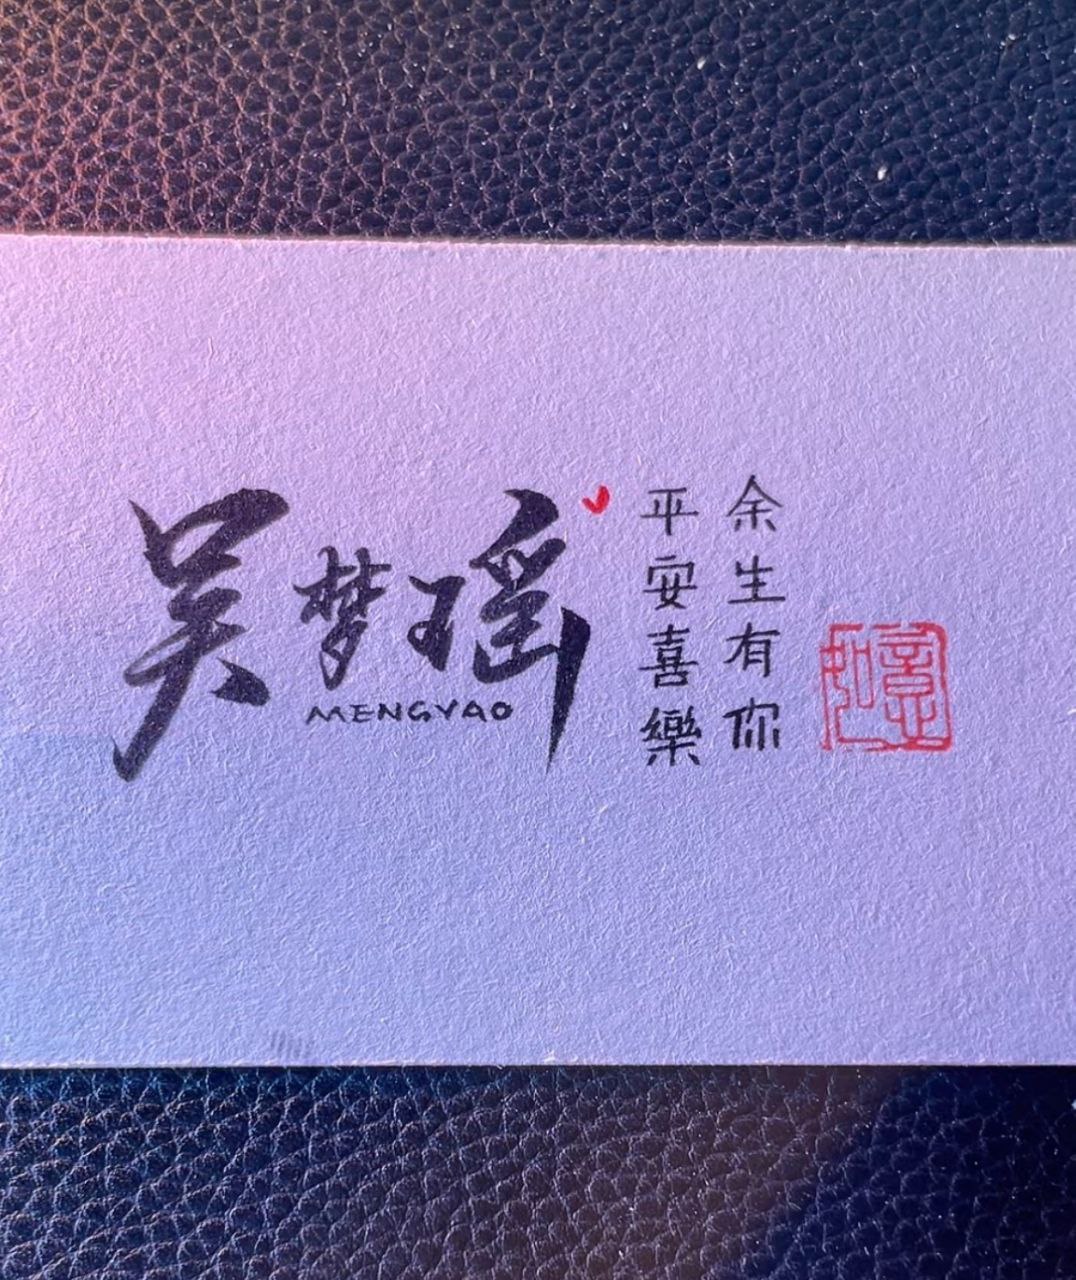 吴梦瑶
MENGYAO
余生有你
平安喜樂
如意